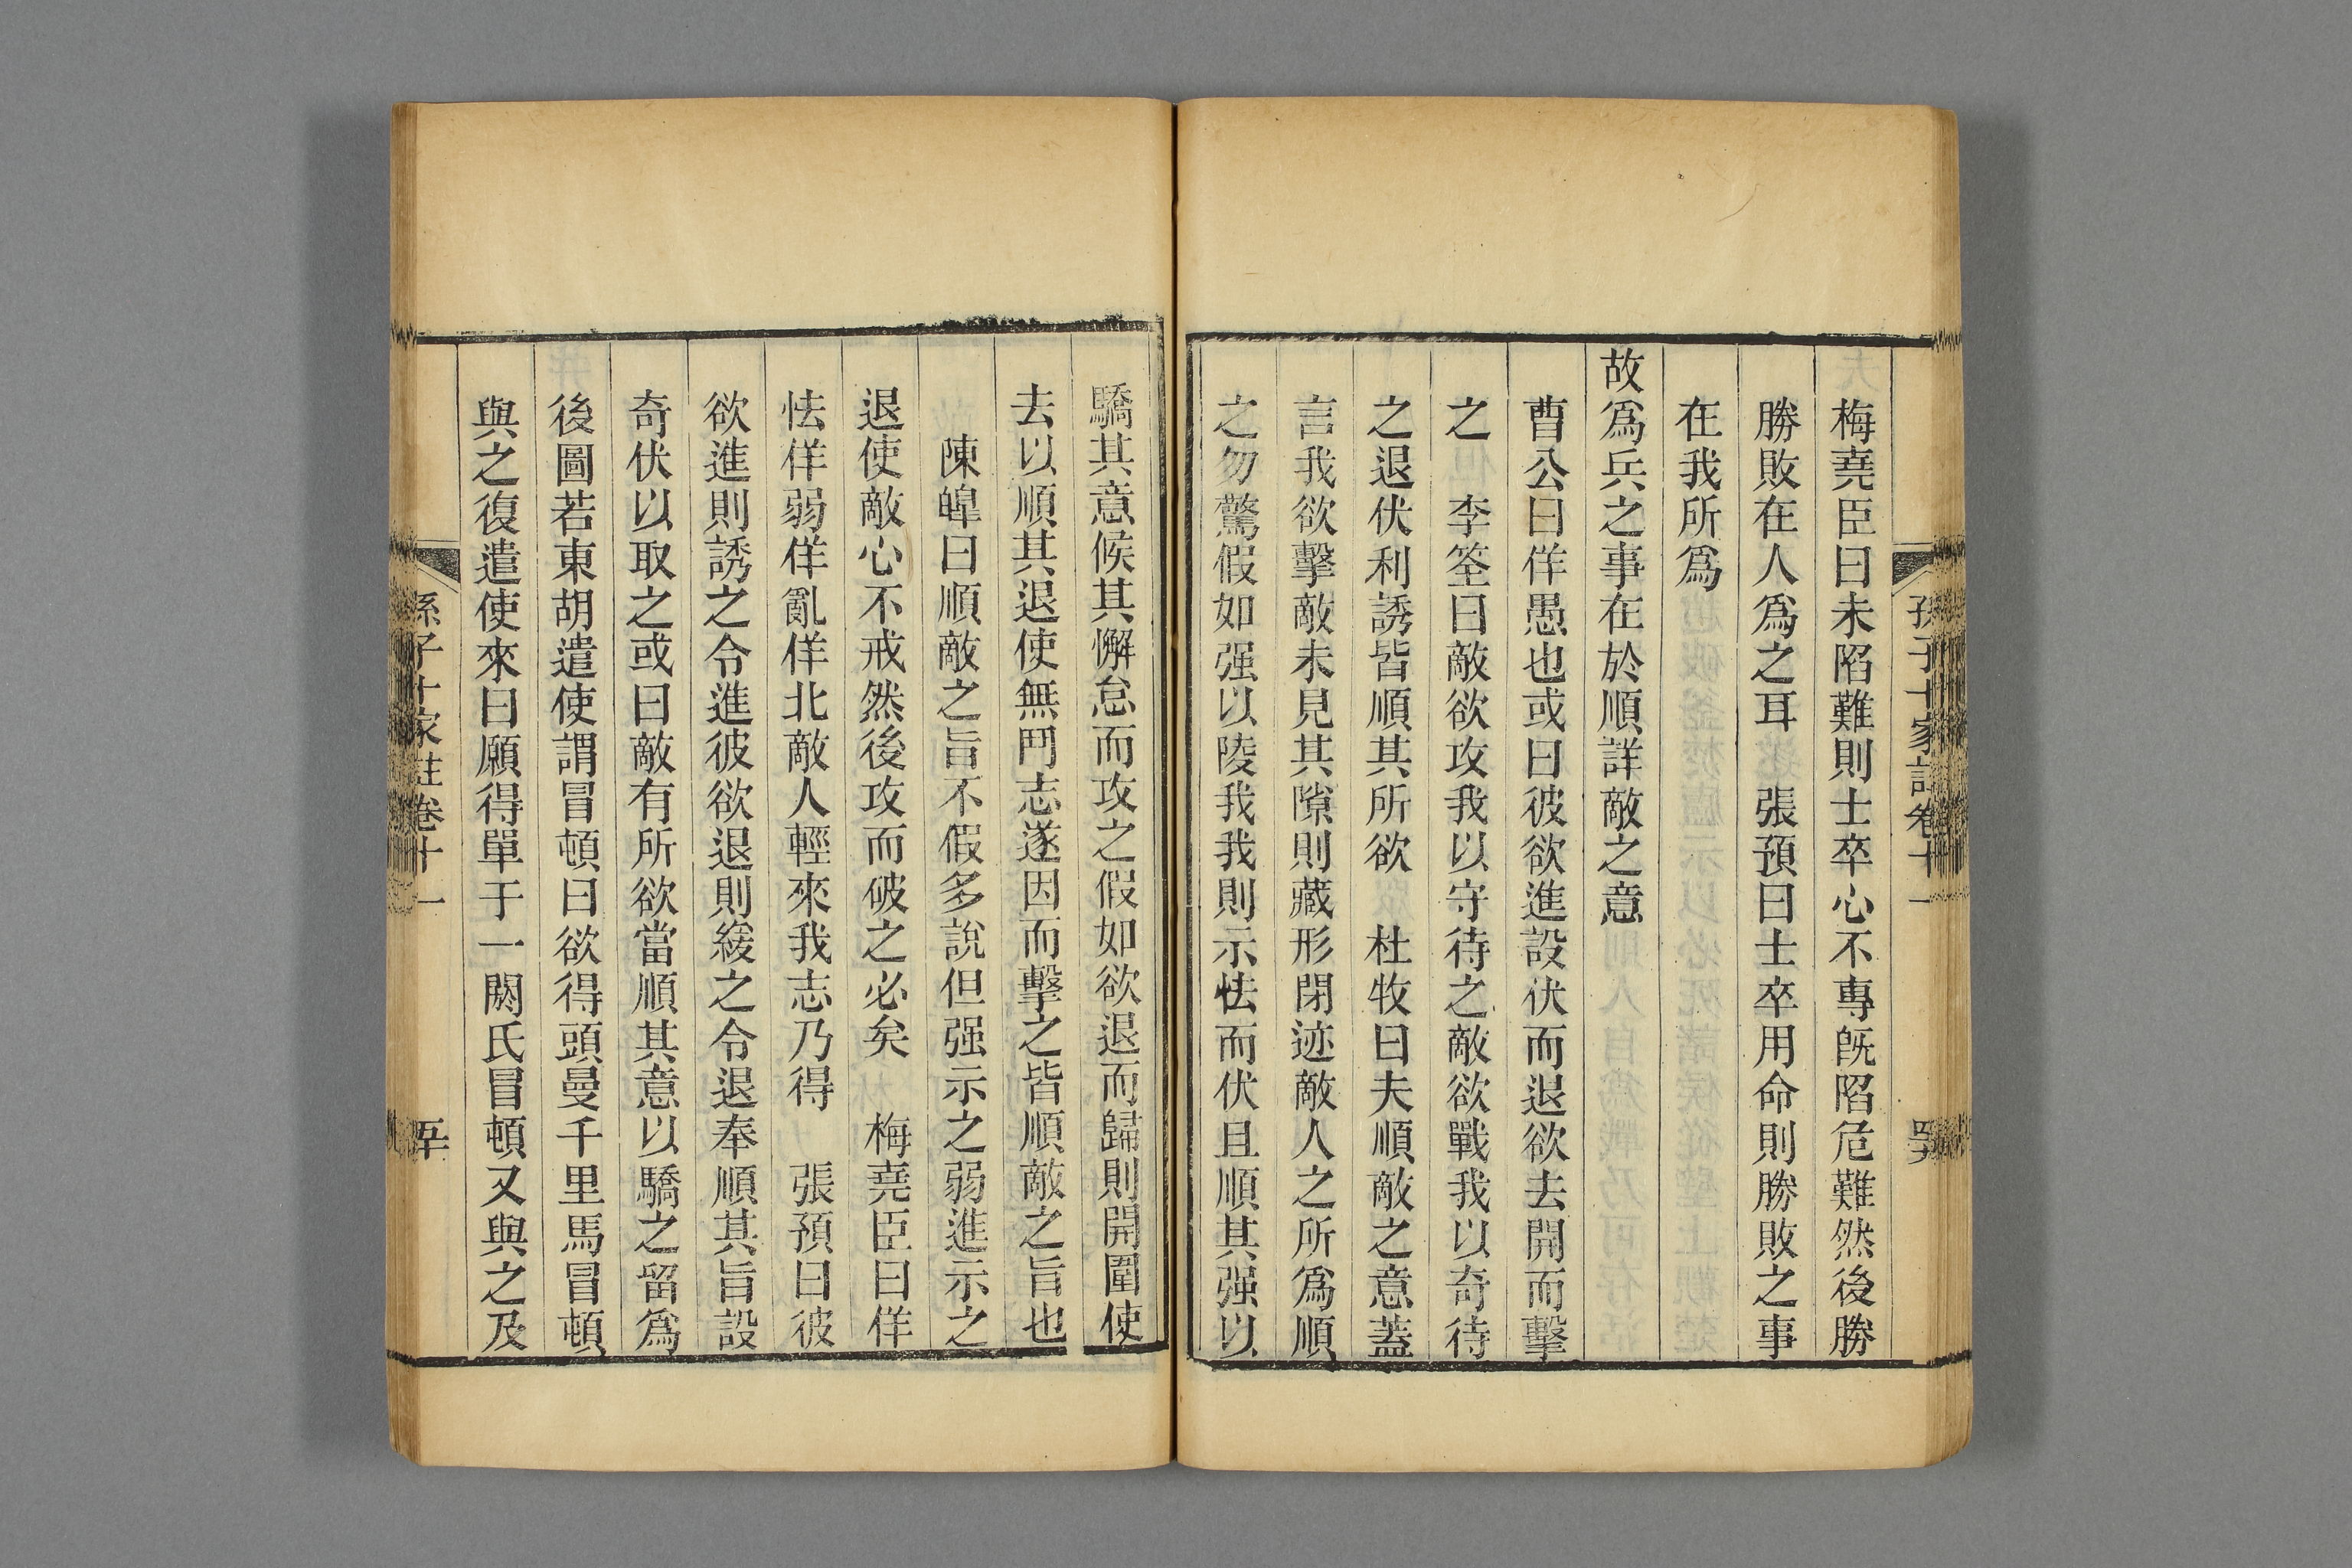 孫子十家註卷十一
梅堯臣曰未陷難則士卒心不專旣陷危難然後勝
勝敗在人爲之耳　張預曰士卒用命則勝敗之事
在我所爲
故爲兵之事在於順詳敵之意
曹公曰佯愚也或曰彼欲進設伏而退欲去開而擊
之　李筌曰敵欲攻我以守待之敵欲戰我以奇待
之退伏利誘皆順其所欲　杜牧曰夫順敵之意蓋
言我欲擊敵未見其隙則藏形閉迹敵人之所爲順
之勿驚假如强以陵我我則示怯而伏且順其强以
驕其意候其懈怠而攻之假如欲退而歸則開圍使
去以順其退使無鬥志遂因而擊之皆順敵之旨也
陳皥曰順敵之旨不假多說但强示之弱進示之
退使敵心不戒然後攻而破之必矣　梅堯臣曰佯
怯佯弱佯亂佯北敵人輕來我志乃得　張預曰彼
欲進則誘之令進彼欲退則緩之令退奉順其旨設
奇伏以取之或曰敵有所欲當順其意以驕之留爲
後圖若東胡遣使謂冒頓曰欲得頭曼千里馬冒頓
與之復遣使來曰願得單于一閼氏冒頓又與之及
孫子十家註卷十一